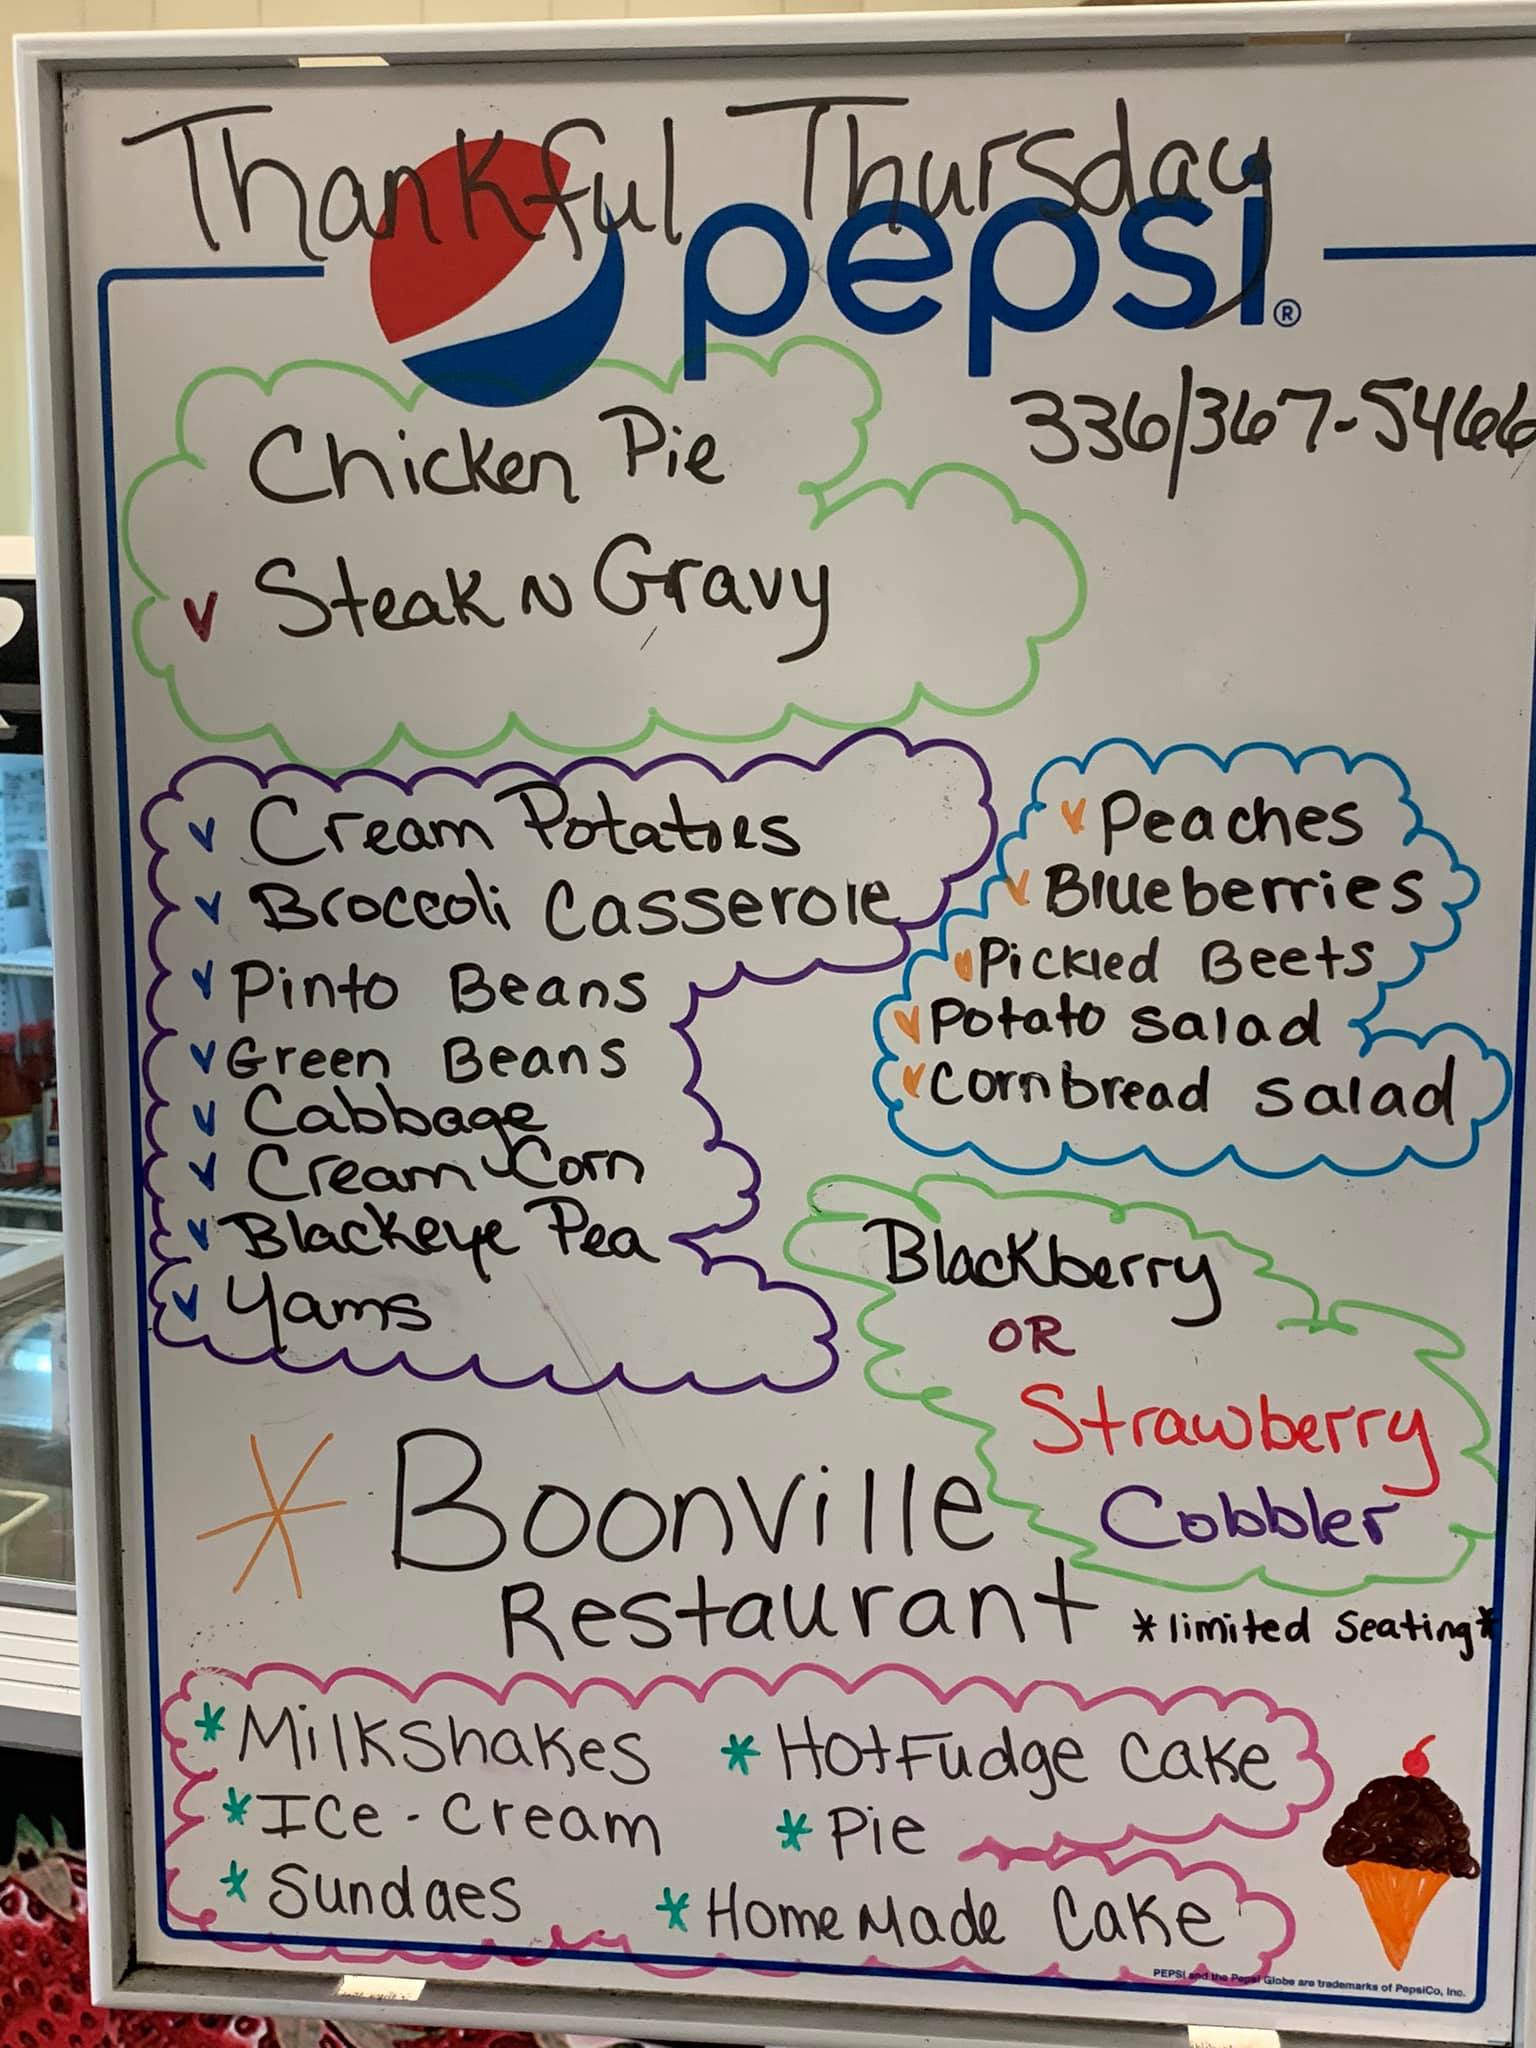 Thankful Thursday
pepsi®
336/367-5466
Chicken Pie
v Steak N Gravy
v Cream Potatoes
v Broccoli Casserole
v Pinto Beans
v Green Beans
v Cabbage
v Cream Corn
v Blackeye Pea
v Yams
v Peaches
v Blueberries
v Pickled Beets
v Potato salad
v Cornbread salad
Blackberry
OR
Strawberry
Cobbler
* Boonville
Restaurant
*limited seating*
*Milkshakes
*Ice-Cream
*Sundaes
*Hot Fudge Cake
*Pie
*HomeMade Cake
PEPSI and the Pepsi Globe are trademarks of PepsiCo, Inc.